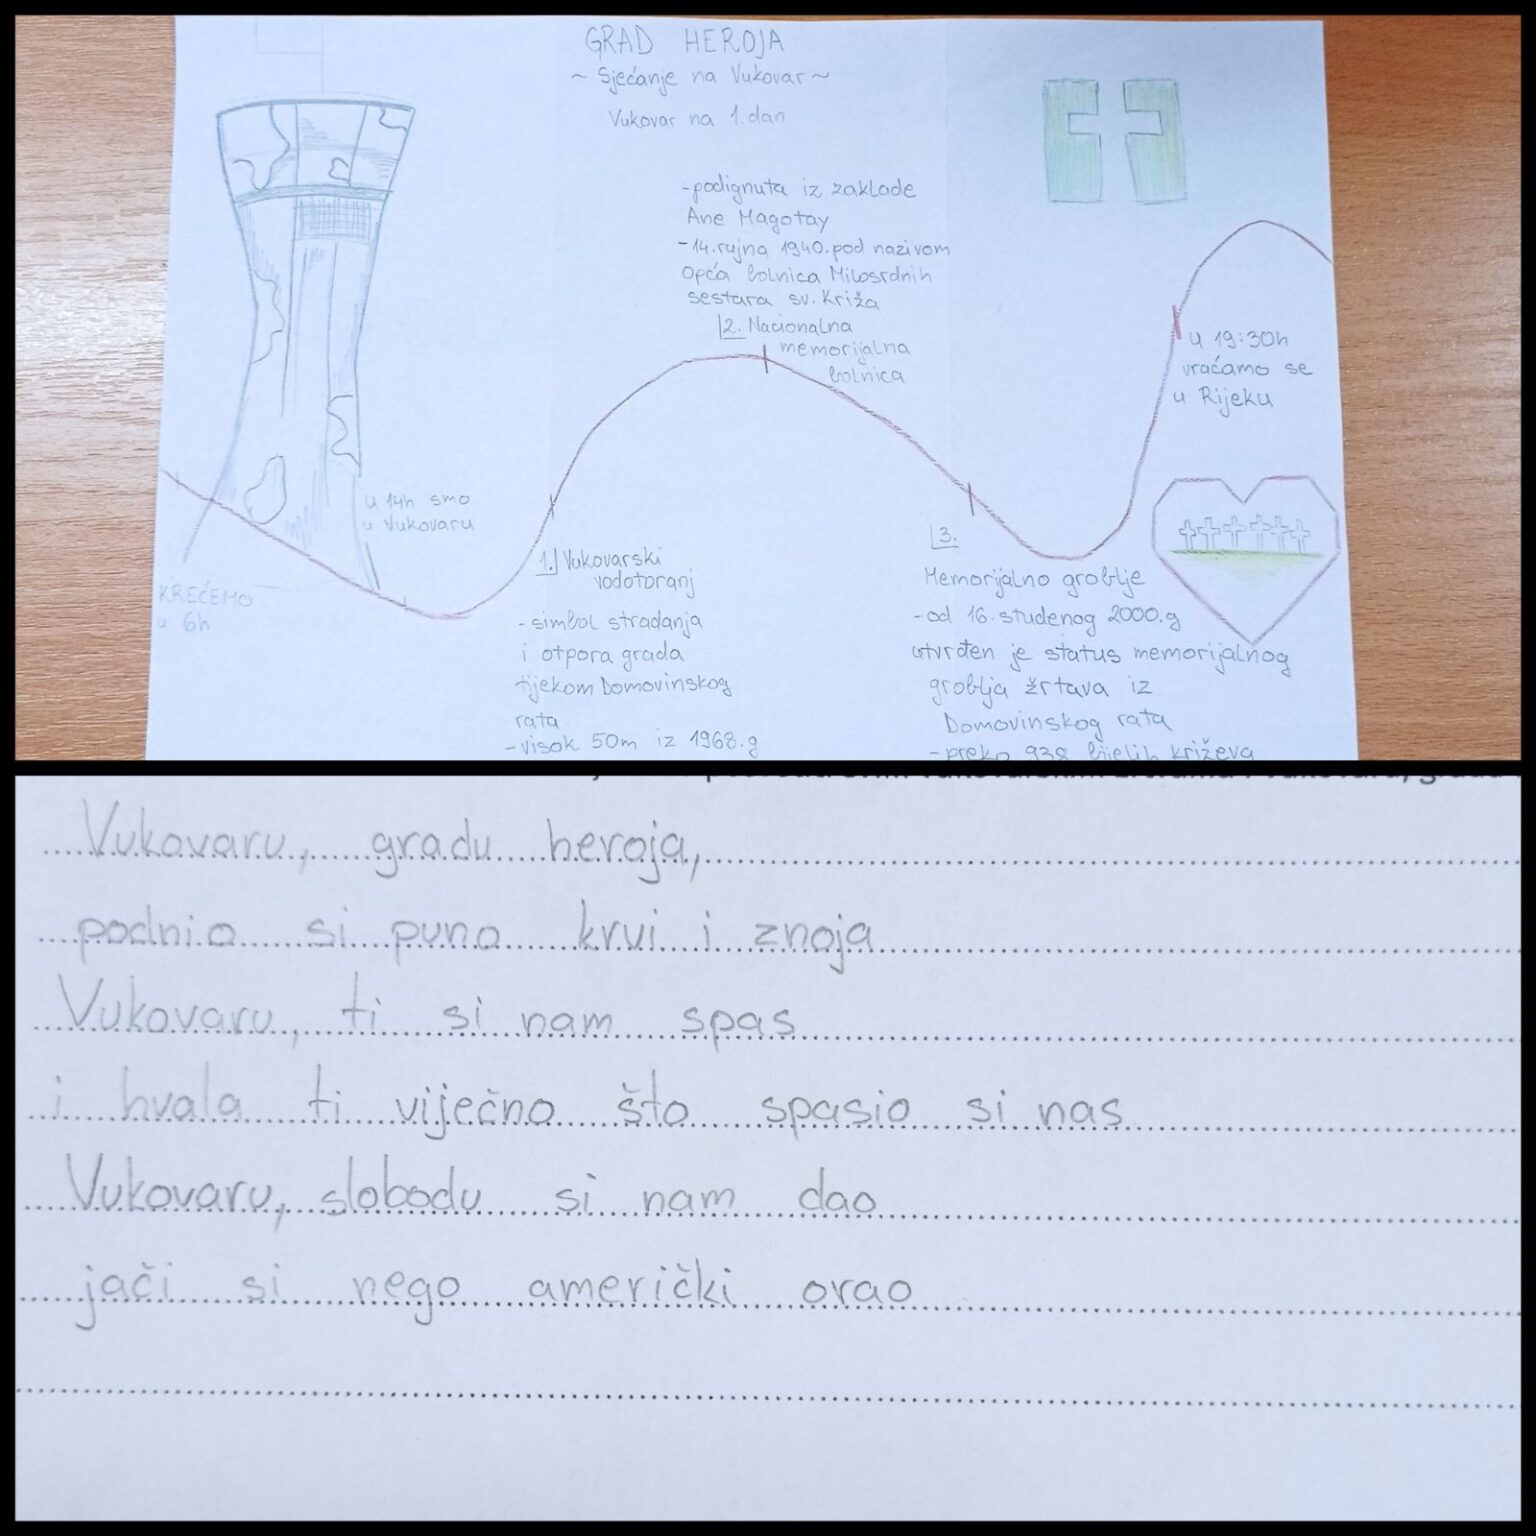 GRAD HEROJA
~ Sjećanje na Vukovar ~
Vukovar na 1. dan
- podignuta iz zaklade
Ane Magotay
- 14. rujna 1940. pod nazivom
Opća bolnica Milosrdnih
sestara sv. Križa
2. Nacionalna
memorijalna
bolnica
u 19:30h
vraćamo se
u Rijeku
u 14h smo
u Vukovaru
KREĆEMO
u 6h
1. Vukovarski
vodotoranj
- simbol stradanja
i otpora grada
tijekom Domovinskog
rata
- visok 50m iz 1968.g
3.
Memorijalno groblje
- od 16. studenog 2000.g
utvrđen je status memorijalnog
groblja žrtava iz
Domovinskog rata
- preko 938 bijelih križeva
Vukovaru, gradu heroja,
podnio si puno krvi i znoja
Vukovaru, ti si nam spas
i hvala ti viječno što spasio si nas
Vukovaru, slobodu si nam dao
jači si nego američki orao